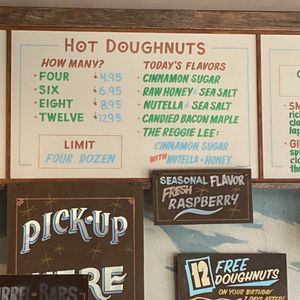 HOT DOUGHNUTS
HOW MANY?
• FOUR $4.95
• SIX $6.95
• EIGHT $8.95
• TWELVE $12.95
LIMIT
FOUR DOZEN
TODAY'S FLAVORS
• CINNAMON SUGAR
• RAW HONEY & SEA SALT
• NUTELLA & SEA SALT
• CANDIED BACON MAPLE
• THE REGGIE LEE:
CINNAMON SUGAR
WITH NUTELLA & HONEY
SEASONAL FLAVOR
FRESH
RASPBERRY
PICK-UP
HERE
BARS
12 FREE
DOUGHNUTS
ON YOUR BIRTHDAY